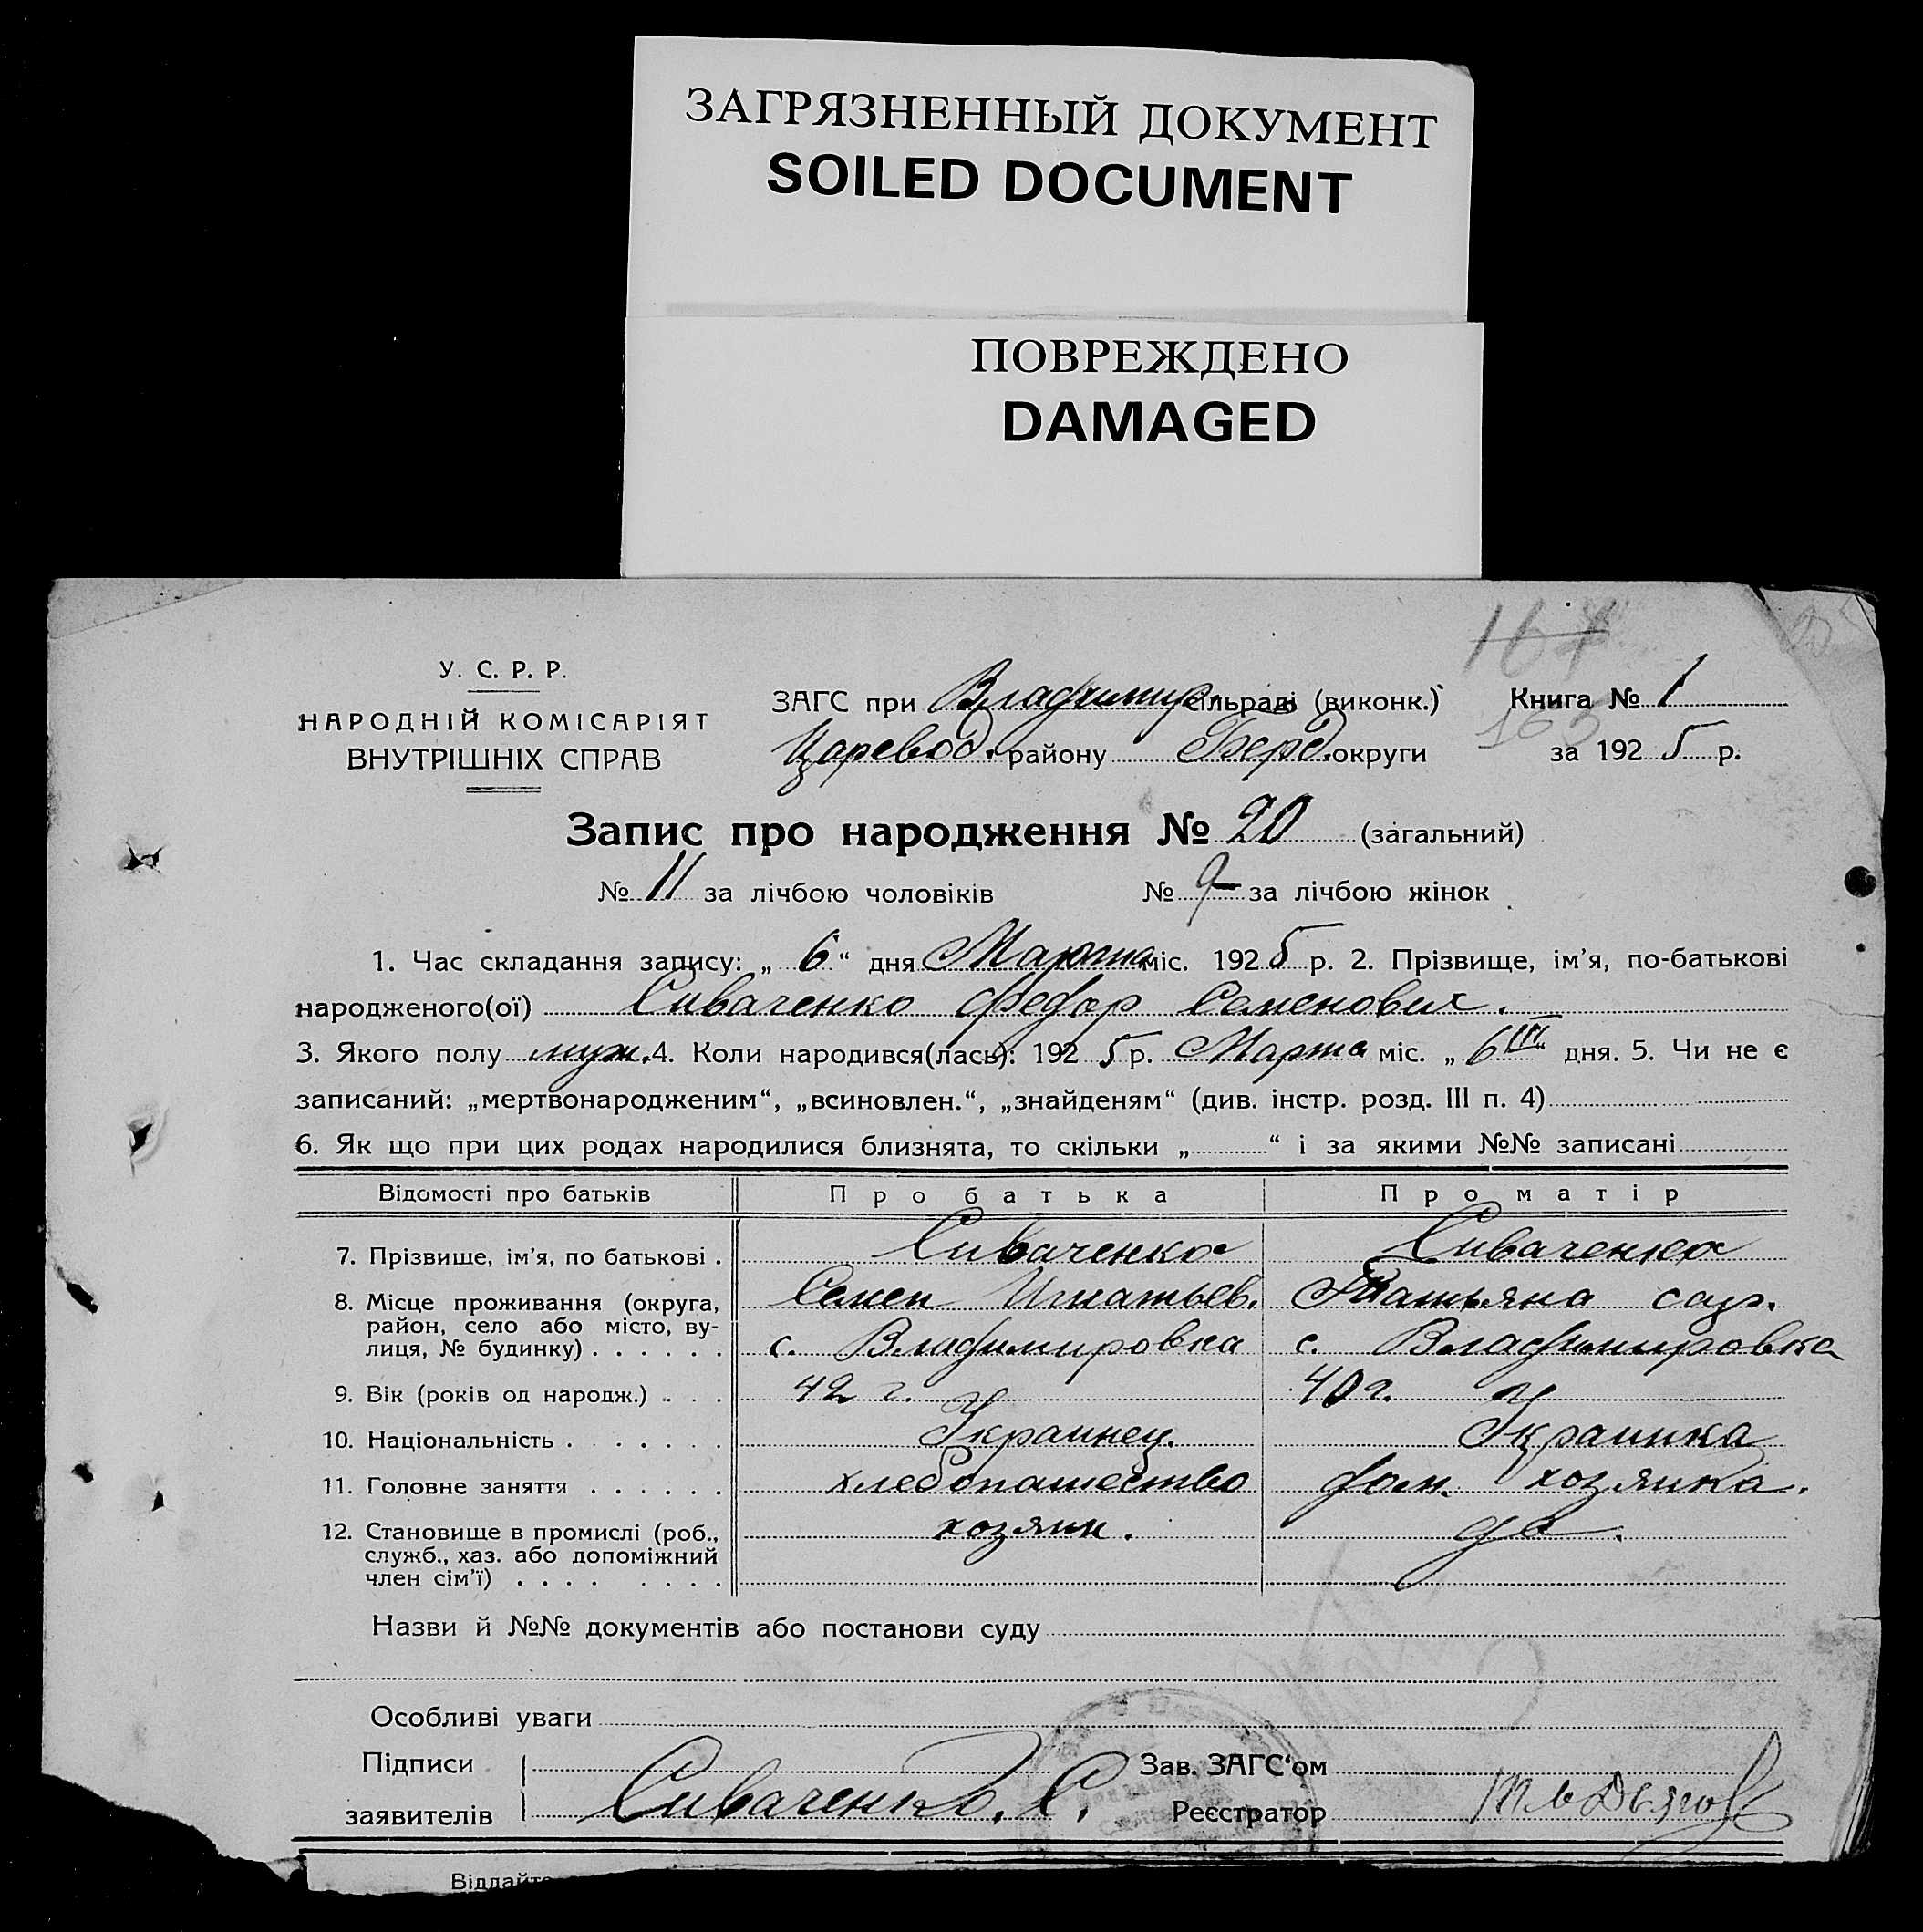 ЗАГРЯЗНЕННЫЙ ДОКУМЕНТ
SOILED DOCUMENT
ПОВРЕЖДЕНО
DAMAGED
У. С. Р. Р.
НАРОДНІЙ КОМІСАРІЯТ
ВНУТРІШНІХ СПРАВ
ЗАГС при Владимир. сільраді (виконк.)
Царевод. району Берд. округи
164
Книга № 1
165
за 1925 р.
Запис про народження № 20 (загальний)
№ 11 за лічбою чоловіків № 9 за лічбою жінок
1. Час складання запису: „ 6 “ дня Марта міс. 1925 р. 2. Прізвище, ім'я, по-батькові
народженого(ої) Сиваченко Федор Семенович.
3. Якого полу муж. 4. Коли народився(лась): 1925 р. Марта міс. „ 6 III “ дня. 5. Чи не є
записаний: „мертвонародженим“, „всиновлен.“, „знайденям“ (див. інстр. розд. III п. 4)
6. Як що при цих родах народилися близнята, то скільки „ “ і за якими №№ записані
Відомості про батьків Про батька Про матір
7. Прізвище, ім'я, по батькові . Сиваченко Сиваченко
Семен Игнатьев. Татьяна
8. Місце проживання (округа, район, село або місто, вулиця, № будинку) . . . . . . с. Владимировка с. Владимировка
9. Вік (років од народж.) . . . 42 г. 40 г.
10. Національність . . . . . . . Украинец. Украинка
11. Головне заняття . . . . . . хлебопашество дом. хозяйка.
12. Становище в промислі (роб., служб., хаз. або допоміжний член сім'ї) . . . . . . . . хозяин. да.
Назви й №№ документів або постанови суду
Особливі уваги
Підписи
заявителів Сиваченко. С.
Зав. ЗАГС'ом
Реєстратор